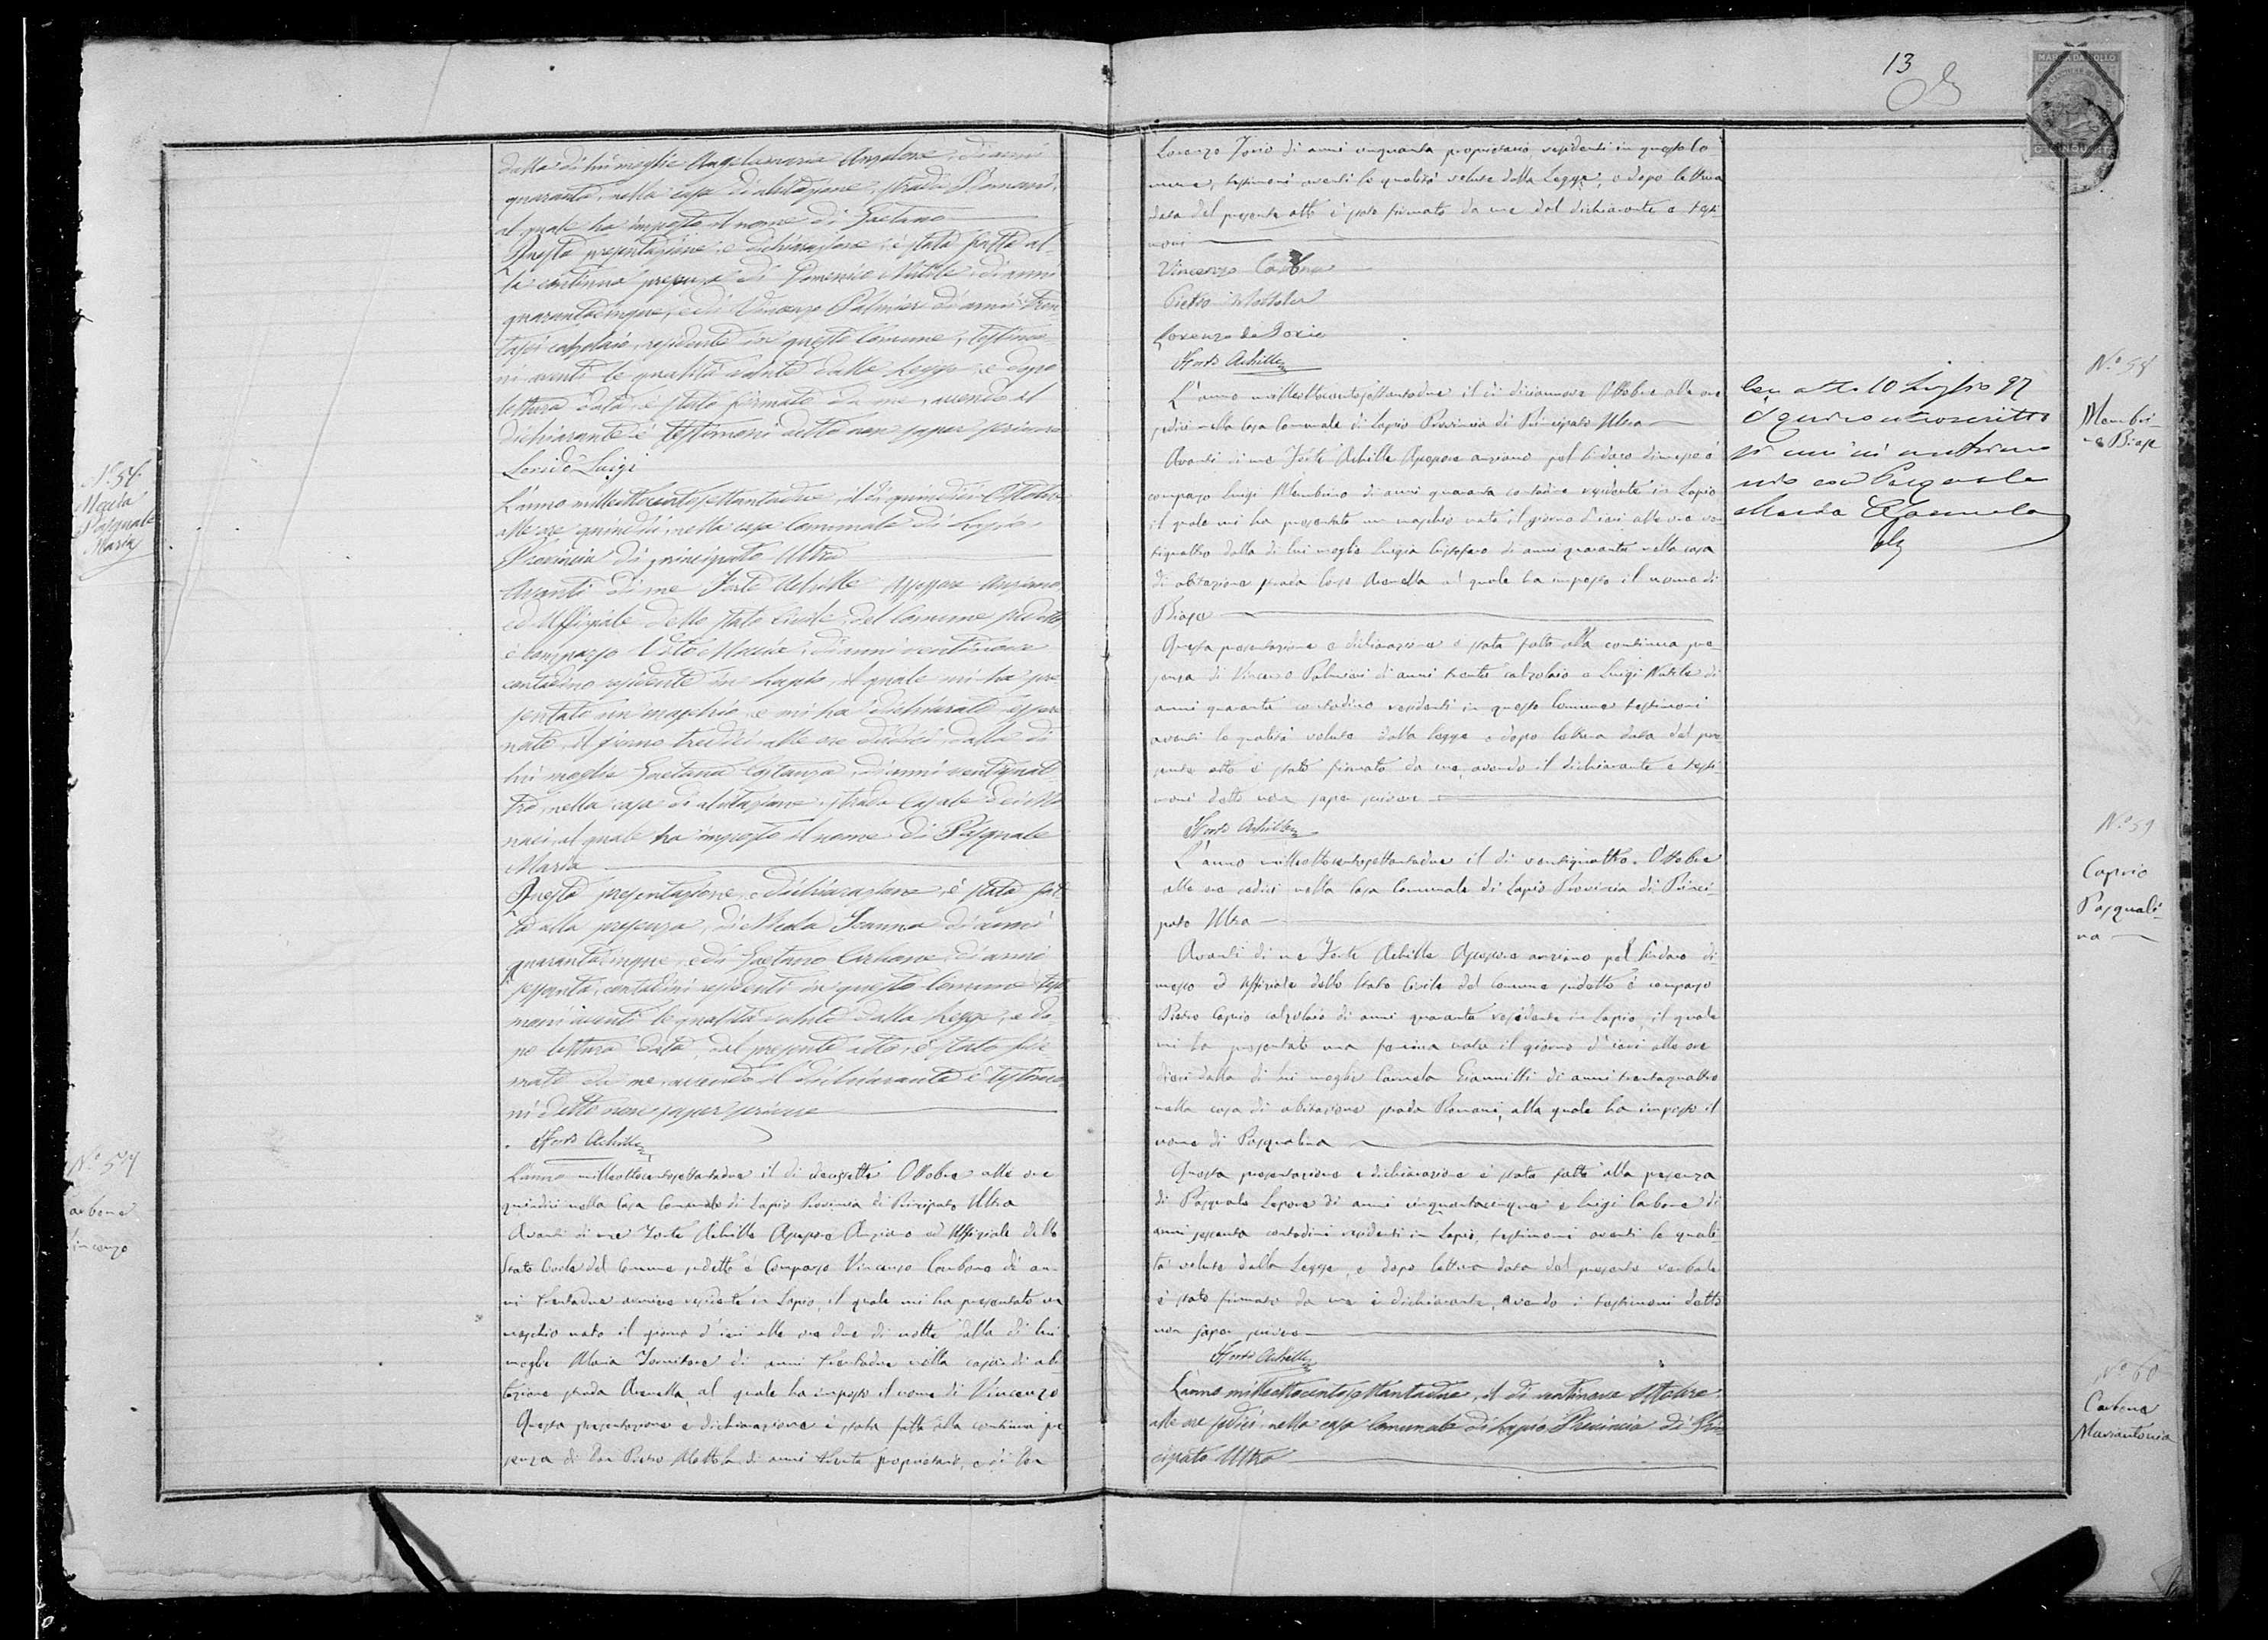 dalla di lui moglie Angelamaria Anzalone, di anni
quaranta, nella casa di abitazione, strada Romani,
al quale ha imposto il nome di Gaetano
Questa presentazione, e dichiarazione, è stata fatta al-
la continua presenza di Domenico Natale, di anni
quarantacinque, e di Vincenzo Palmieri di anni tren-
tasei calzolaio, residenti in questo Comune, testimo-
ni aventi le qualità volute dalla Legge, e dopo
lettura data, è stato firmato da me, avendo il
dichiarante e testimoni detto non saper scrivere
Luigi
N.° 57.
Pasquale
Maria
L'anno milleottocentosettantadue, il dì quindici Ottobre
alle ore quindici, nella casa Comunale di Lapio,
Provincia di Principato Ultra
Avanti di me Forte Achille Assessore Anziano
ed Uffiziale dello Stato Civile, del Comune sudetto
è comparso Vito Maria, di anni ventinove
contadino residente in Lapio, il quale mi ha pre
sentato un maschio, e mi ha dichiarato essere
nato, il giorno tredici alle ore dodici, dalla di
lui moglie Gaetana Costanza, di anni ventiquat-
tro, nella casa di abitazione, strada Casale
al quale ha imposto il nome di Pasquale
Maria
Questa presentazione, e dichiarazione, è stata fat-
ta alla presenza, di Nicola Ioanna di anni
quarantacinque, e di Gaetano Carbone, di anni
sessanta, contadini residenti in questo Comune, testi
moni aventi le qualità volute dalla Legge, e do-
po lettura data, del presente atto, è stato fir-
mato da me, avendo il dichiarante e testimo
ni detto non saper scrivere
Forte Achille
Carbone
Vincenzo
L'anno milleottocentosettantadue il dì diciassette Ottobre alle ore
quindici nella Casa Comunale di Lapio Provincia di Principato Ultra
Avanti di me Forte Achille Assessore Anziano ed Uffiziale dello
Stato Civile del Comune sudetto è Comparso Vincenzo Carbone di an-
ni trentadue residente in Lapio, il quale mi ha presentato un
maschio nato il giorno d'ieri alle ore due di notte dalla di lui
moglie Maria di anni trentadue nella casa di abi
tazione strada Arenella, al quale ha imposto il nome di Vincenzo
Questa presentazione e dichiarazione è stata fatta alla continua pre
senza di Don Pietro Mottola di anni trenta proprietario, e di Don
13
Lorenzo Iorio di anni cinquanta proprietario, residenti in questo Co
mune, testimoni aventi le qualità volute dalla Legge, e dopo lettura
data del presente atto è stato firmato da me dal dichiarante e testi
moni
Vincenzo Carbone
Pietro Mottola
Lorenzo de Iorio
Forte Achille
N.° 58
Membri-
no Biase
L'anno milleottocentosettantadue il dì diciannove Ottobre alle ore
sedici nella Casa Comunale di Lapio Provincia di Principato Ultra
Avanti di me Forte Achille Assessore anziano pel Sindaco dimesso è
comparso Luigi Membrino di anni quaranta contadino residente in Lapio
il quale mi ha presentato un maschio nato il giorno d'ieri alle ore ven
tiquattro dalla di lui moglie Luigia Cristofaro di anni quaranta nella casa
di abitazione strada Arenella al quale ha imposto il nome di
Biase
Questa presentazione e dichiarazione è stata fatta alla continua pre
senza di Vincenzo Palmieri di anni trenta calzolaio e Luigi Natale di
anni quaranta contadino residenti in questo Comune testimoni
aventi le qualità volute dalla legge e dopo lettura data del pre
sente atto è stato firmato da me, avendo il dichiarante e testi-
moni detto non saper scrivere
Forte Achille
Con atto 10 Luglio 97
si unì in matrimo
nio con
N.° 59
Caprio
Pasquali-
na
L'anno milleottocentosettantadue il dì ventiquattro Ottobre
alle ore sedici nella Casa Comunale di Lapio Provincia di Princi-
pato Ultra
Avanti di me Forte Achille Assessore anziano pel Sindaco di
messo ed Uffiziale dello Stato Civile del Comune sudetto è comparso
Pietro Caprio calzolaio di anni quaranta residente in Lapio, il quale
mi ha presentato una femina nata il giorno d'ieri alle ore
dieci dalla di lui moglie Carmela Giannitti di anni trentaquattro
nella casa di abitazione strada Romani, alla quale ha imposto il
nome di Pasqualina
Questa presentazione e dichiarazione è stata fatta alla presenza
di Pasquale Lepore di anni cinquantacinque e Luigi Carbone di
anni sessanta contadini residenti in Lapio, testimoni aventi le quali-
tà volute dalla Legge, e dopo lettura data del presente verbale
è stato firmato da me e dichiarante, avendo i testimoni detto
non saper scrivere
Forte Achille
N.° 60
Carbone
Mariantonia
L'anno milleottocentosettantadue, il dì ventinove Ottobre
alle ore sedici, nella casa Comunale di Lapio Provincia di Prin
cipato Ultra